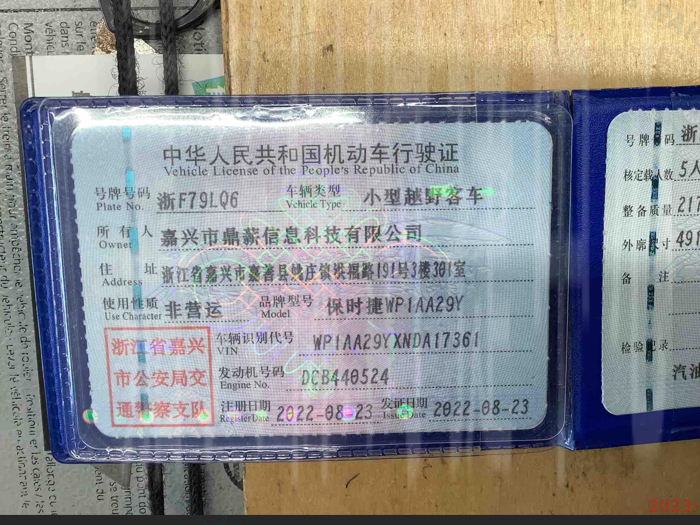 中华人民共和国机动车行驶证
Vehicle License of the People's Republic of China
号牌号码 浙F79LQ6 车辆类型 小型越野客车
Plate No. Vehicle Type
所有人 嘉兴市鼎薪信息科技有限公司
Owner
住址 浙江省嘉兴市嘉善县姚庄镇洪福路191号3楼301室
Address
使用性质 非营运 品牌型号 保时捷WP1AA29Y
Use Character Model
浙江省嘉兴
市公安局交
通警察支队
车辆识别代号 WP1AA29YXNDA17361
VIN
发动机号码 DCB440524
Engine No.
注册日期 2022-08-23 发证日期 2022-08-23
Register Date Issue Date
号牌号码 浙
核定载人数 5人
整备质量 217
外廓尺寸 491
备注
检验记录
汽油
2023-